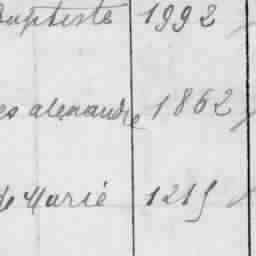 Baptiste 1992
es alexandre 1862
de Marie 1215